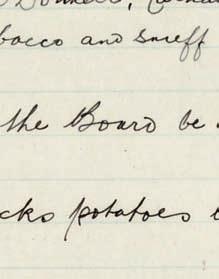 bacco and snuff
the Board be
cks potatoes